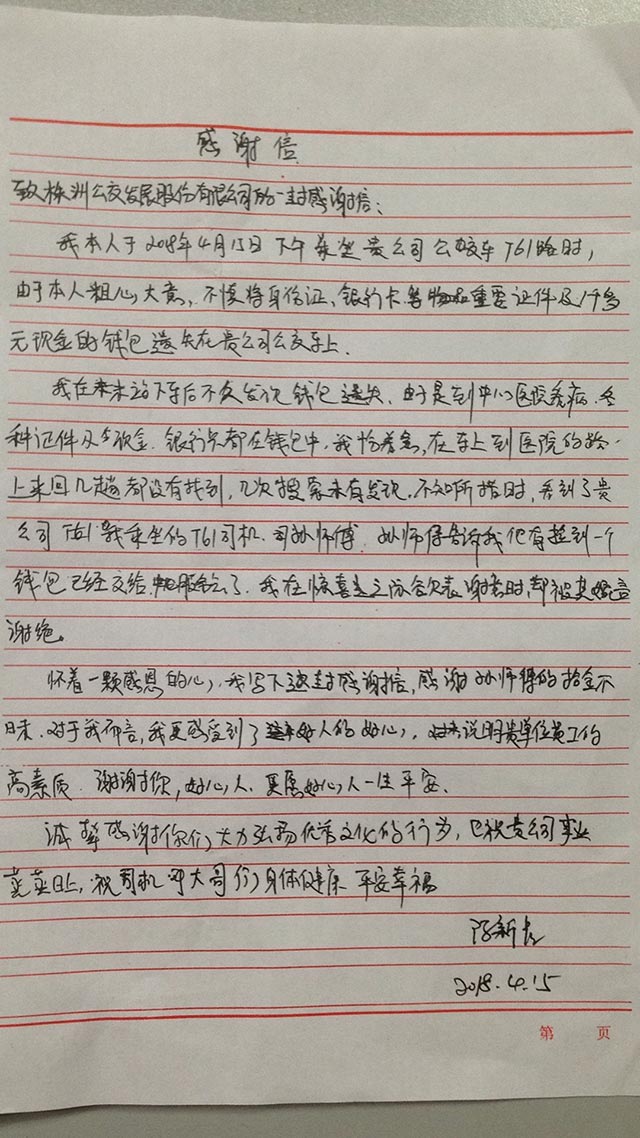 感谢信
致株洲公交发展股份有限公司的一封感谢信：
我本人于2018年4月15日下午乘坐贵公司公交车T61路时，
由于本人粗心大意，不慎将身份证、银行卡等物品重要证件及1千多
元现金的钱包遗失在贵公司公交车上。
我在未来站下车后不久发现钱包遗失，由于是到中心医院看病，各
种证件及现金、银行卡都在钱包中，我恰着急，在车上到医院的路
上来回几趟都没有找到，几次搜索未有发现，不知所措时，看到了贵
公司 我乘坐的T61司机 孙师傅，孙师傅告诉我他有捡到一个
钱包已经交给 服务台了，我在惊喜之际多次表谢意时，却被其婉言
谢绝。
怀着一颗感恩的心，我写下这封感谢信，感谢孙师傅的拾金不
昧，对于我而言，我更感受到了 好人的好心，也说明贵单位员工的
高素质，谢谢你，好心人，更愿好心人一生平安。
诚挚感谢你们大力弘扬优秀文化的行为，也祝贵公司事业
蒸蒸日上，祝司机 大哥们身体健康 平安幸福
2018.4.15
第 页